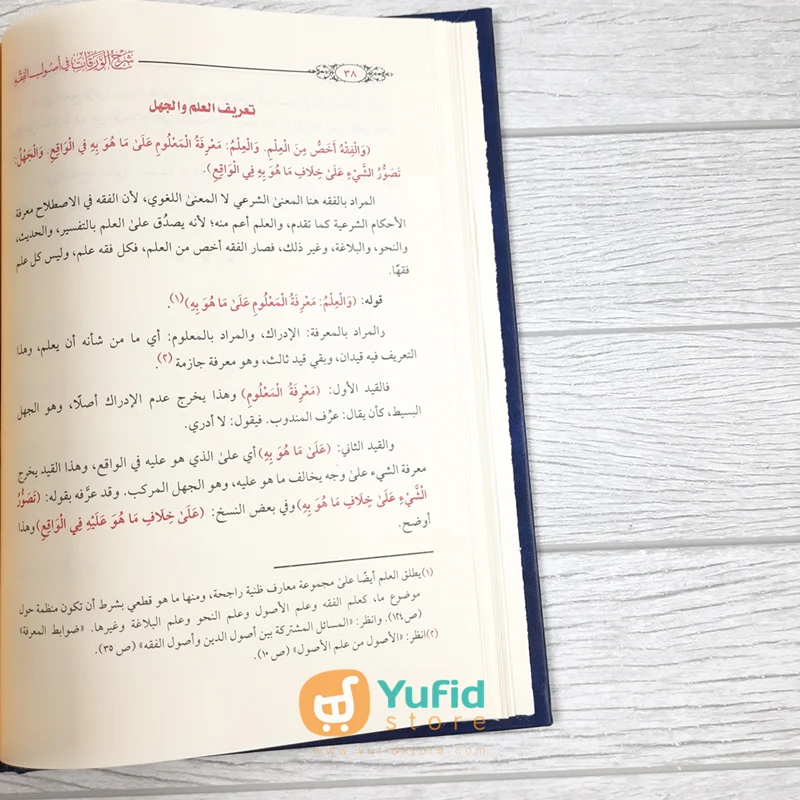 شرح الورقات في أصول الفقه
٣٨
تعريف العلم والجهل
(وَالْفِقْهُ أَخَصُّ مِنَ الْعِلْمِ. وَالْعِلْمُ: مَعْرِفَةُ الْمَعْلُومِ عَلَىٰ مَا هُوَ بِهِ فِي الْوَاقِعِ. وَالْجَهْلُ:
تَصَوُّرُ الشَّيْءِ عَلَىٰ خِلَافِ مَا هُوَ بِهِ فِي الْوَاقِعِ).
المراد بالفقه هنا المعنىٰ الشرعي لا المعنىٰ اللغوي، لأن الفقه في الاصطلاح معرفة
الأحكام الشرعية كما تقدم، والعلم أعم منه؛ لأنه يصدُق علىٰ العلم بالتفسير، والحديث،
والنحو، والبلاغة، وغير ذلك، فصار الفقه أخص من العلم، فكل فقه علم، وليس كل علم
فقهًا.
قوله: (وَالْعِلْمُ: مَعْرِفَةُ الْمَعْلُومِ عَلَىٰ مَا هُوَ بِهِ)(١).
والمراد بالمعرفة: الإدراك، والمراد بالمعلوم: أي ما من شأنه أن يعلم، وهذا
التعريف فيه قيدان، وبقي قيد ثالث، وهو معرفة جازمة (٢).
فالقيد الأول: (مَعْرِفَةُ الْمَعْلُومِ) وهذا يخرج عدم الإدراك أصلًا، وهو الجهل
البسيط، كأن يقال: عرِّف المندوب. فيقول: لا أدري.
والقيد الثاني: (عَلَىٰ مَا هُوَ بِهِ) أي علىٰ الذي هو عليه في الواقع، وهذا القيد يخرج
معرفة الشيء علىٰ وجه يخالف ما هو عليه، وهو الجهل المركب. وقد عرَّفه بقوله: (تَصَوُّرُ
الْشَّيْءِ عَلَىٰ خِلَافِ مَا هُوَ بِهِ) وفي بعض النسخ: (عَلَىٰ خِلَافِ مَا هُوَ عَلَيْهِ فِي الْوَاقِعِ) وهذا
أوضح.
(١) يطلق العلم أيضًا علىٰ مجموعة معارف ظنية راجحة، ومنها ما هو قطعي بشرط أن تكون منظمة حول
موضوع ما، كعلم الفقه وعلم الأصول وعلم النحو وعلم البلاغة وغيرها. «ضوابط المعرفة»
(ص١٢٤) وانظر: «المسائل المشتركة بين أصول الدين وأصول الفقه» (ص ٣٥).
(٢) انظر: «الأصول من علم الأصول» (ص ١٠).
Yufid
store
www.yufidstore.com